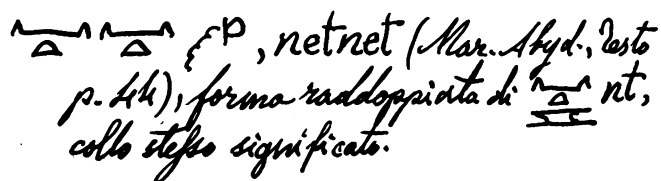 , netnet (Mar. Abyd., Testo
p. 44), forma raddoppiata di nt,
collo stesso significato.